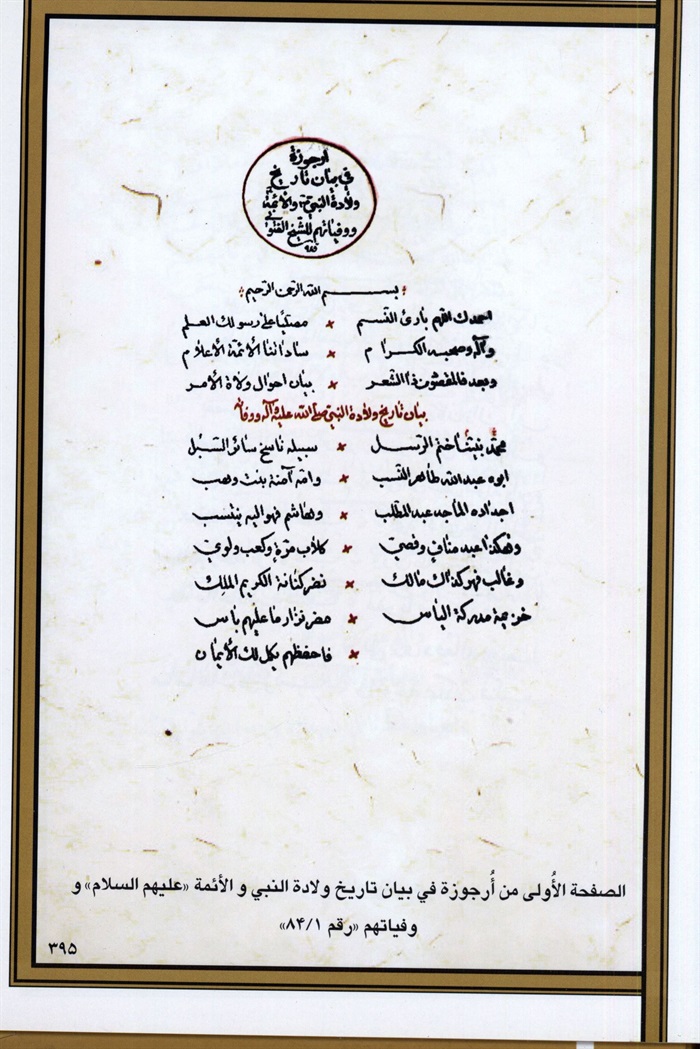 ارجوزة
في بيان تاريخ
ولادة النبي والائمة
ووفياتهم للشيخ الفتوني
بسم الله الرحمن الرحيم
احمدك اللهم بارئ النسم × مصليا على رسولك العلم
وآله وصحبه الكرام × ساداتنا الأئمة الأعلام
وبعد فالمقصود من ذا الشعر × بيان احوال ولاة الأمر
بيان تاريخ ولادة النبي صلى الله عليه وآله ووفاته
محمد نبينا ختم الرسل × سبيله ناسخ سائر السبل
ابوه عبد الله طاهر النسب × وامه آمنة بنت وهب
اجداده الماجد عبد المطلب × وهاشم فهو اليه ينتسب
وهكذا عبد مناف وقصي × كلاب مرة وكعب ولوي
وغالب فهر كذاك مالك × نضر كنانة الكريم الملك
خزيمة مدركة الياس × مضر نزار ما عليهم باس
× فاحفظهم يكمل لك الأيمان
الصفحة الأُولى من أُرجوزة في بيان تاريخ ولادة النبي و الأئمة «عليهم السلام» و
وفياتهم «رقم ٨۴/١»
٣٩۵